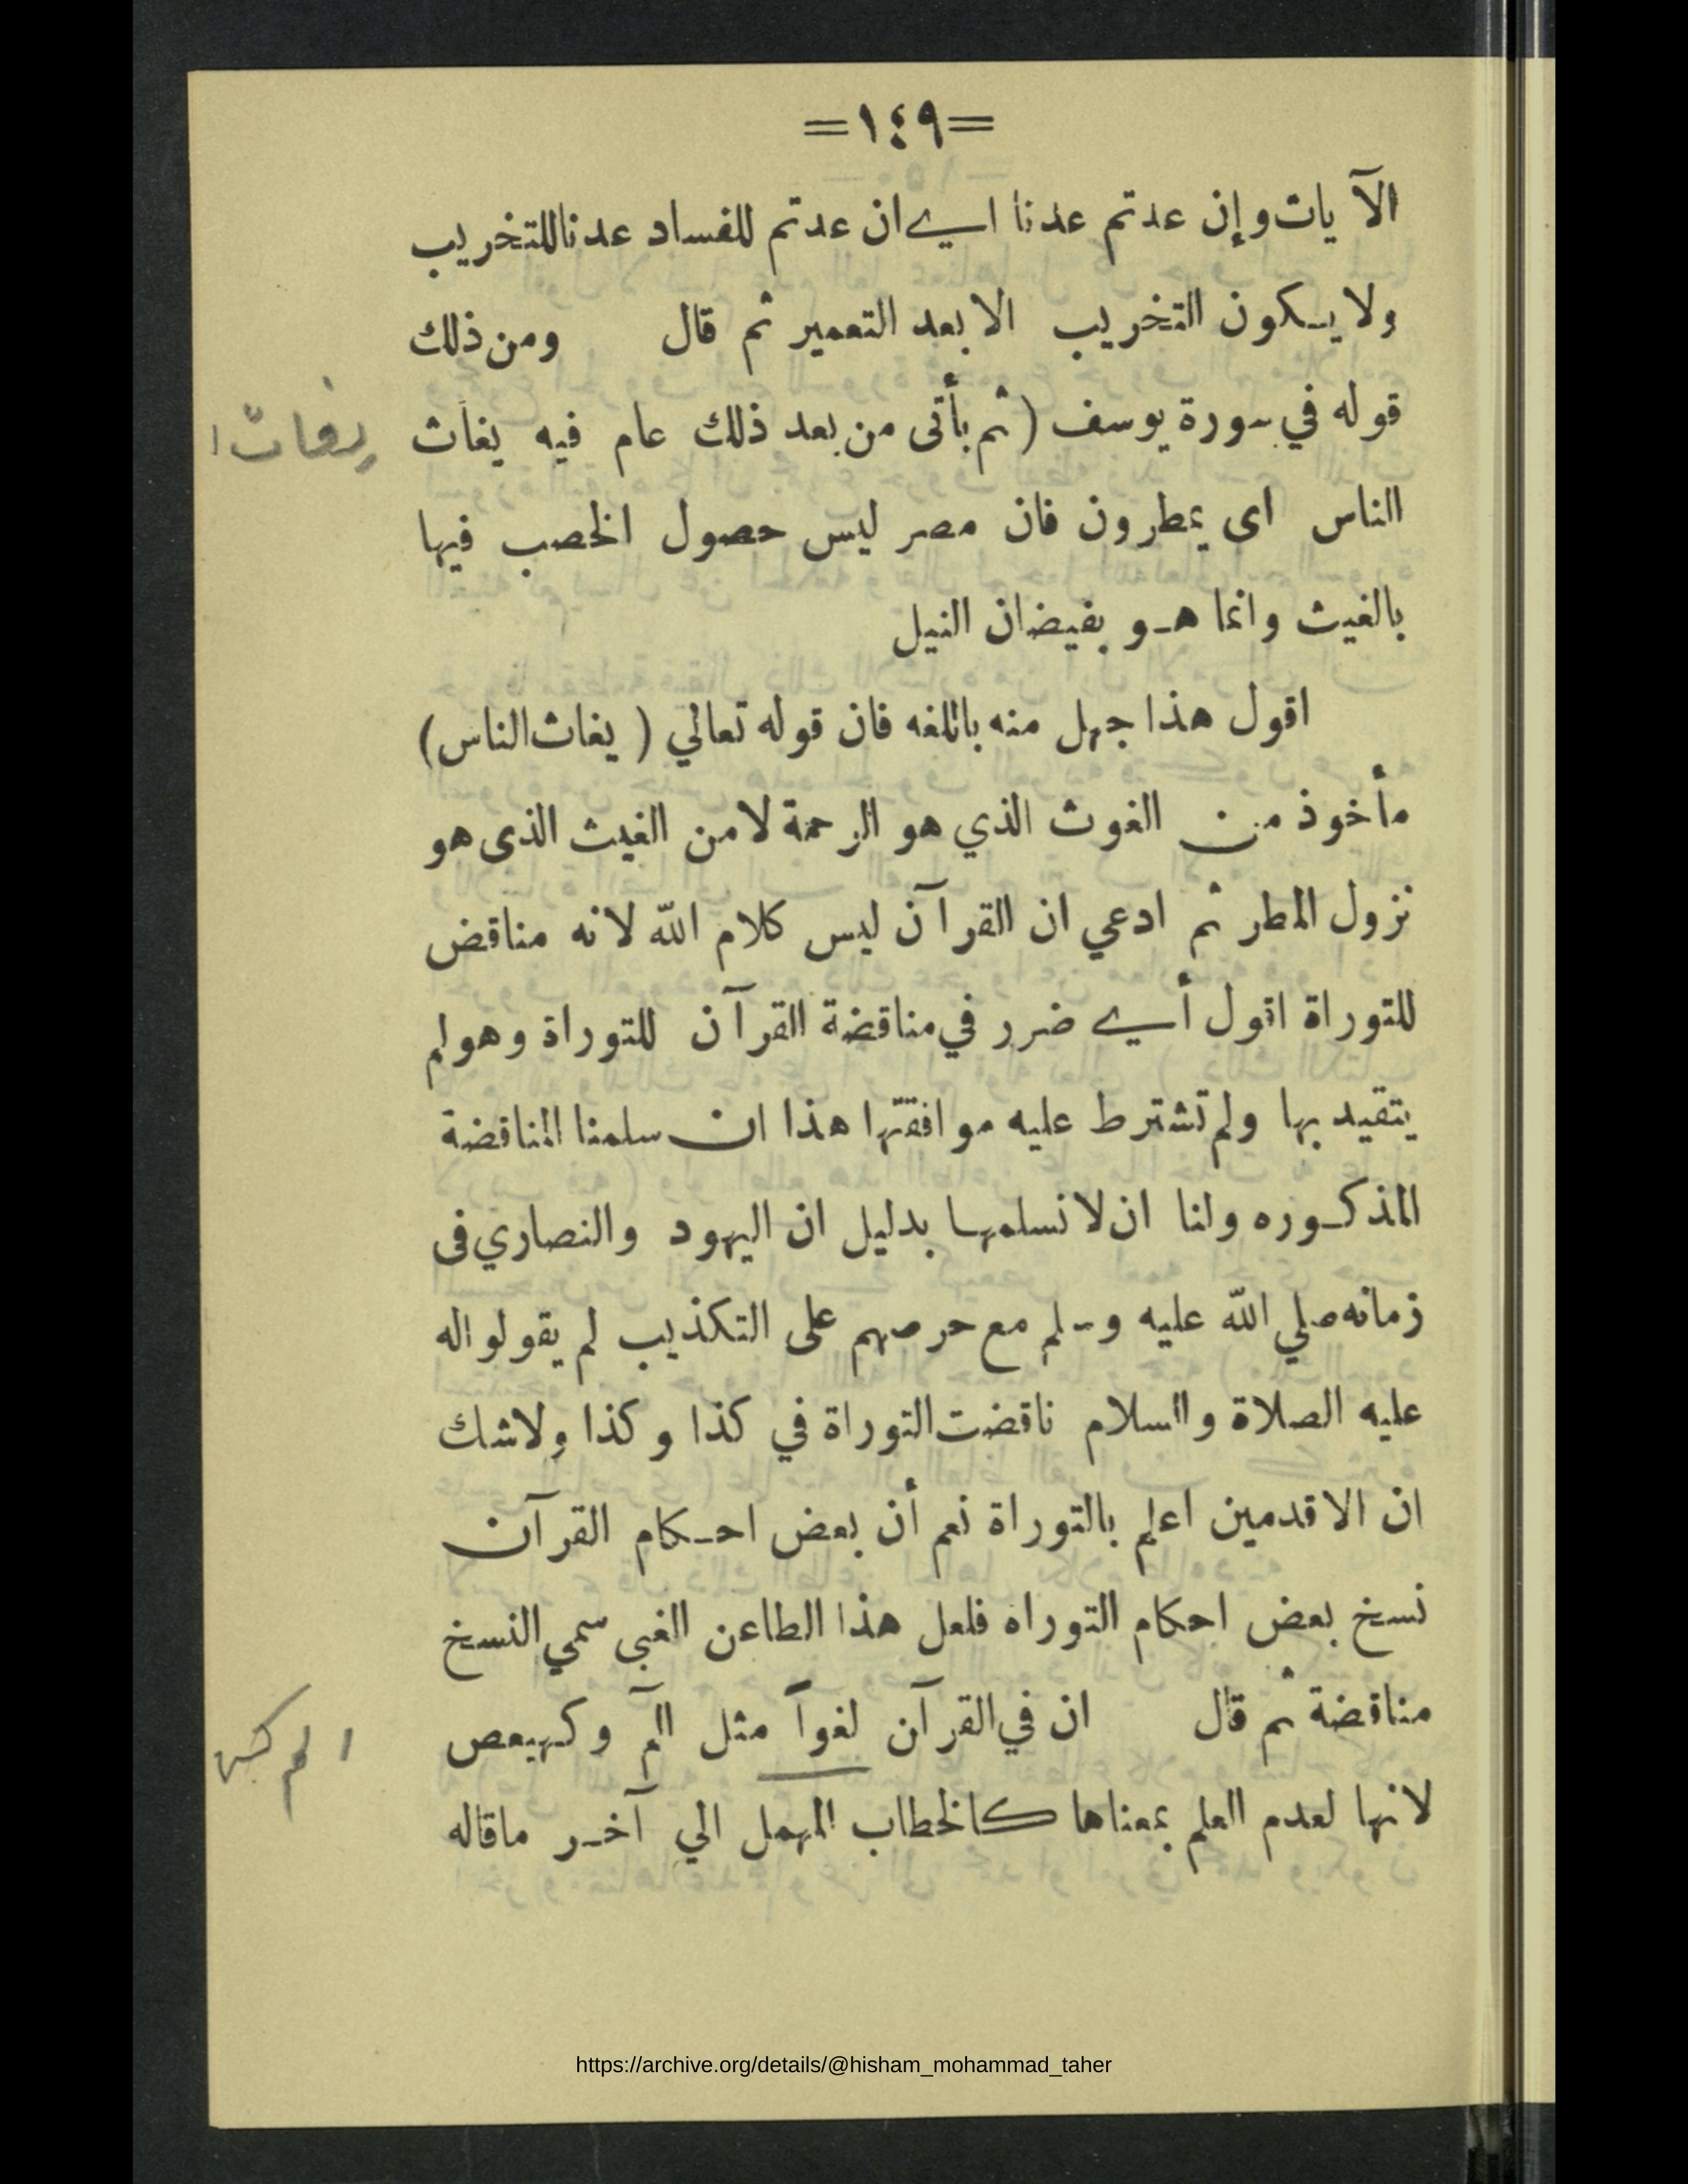 =١٤٩=
الآيات وإن عدتم عدنا اي ان عدتم للفساد عدنا للتخريب
ولا يكون التخريب الا بعد التعمير ثم قال ومن ذلك
قوله في سورة يوسف (ثم يأتى من بعد ذلك عام فيه يغاث
الناس اى يمطرون فان مصر ليس حصول الخصب فيها
بالغيث وانما هو بفيضان النيل
اقول هذا جهل منه باللغه فان قوله تعالي (يغاث الناس)
مأخوذ من الغوث الذي هو الرحمة لا من الغيث الذى هو
نزول المطر ثم ادعي ان القرآن ليس كلام الله لانه مناقض
للتوراة اقول أي ضرر في مناقضة القرآن للتوراة وهو لم
يتقيد بها ولم تشترط عليه موافقتها هذا ان سلمنا المناقضة
المذكوره ولنا ان لا نسلمها بدليل ان اليهود والنصاري فى
زمانه صلي الله عليه وسلم مع حرصهم على التكذيب لم يقولوا له
عليه الصلاة والسلام ناقضت التوراة في كذا وكذا ولا شك
ان الاقدمين اعلم بالتوراة نعم أن بعض احكام القرآن
نسخ بعض احكام التوراه فلعل هذا الطاعن الغبى سمي النسخ
مناقضة ثم قال ان في القرآن لغواً مثل الم وكهيعص
لانها لعدم العلم بمعناها كالخطاب المهمل الي آخر ماقاله
https://archive.org/details/@hisham_mohammad_taher